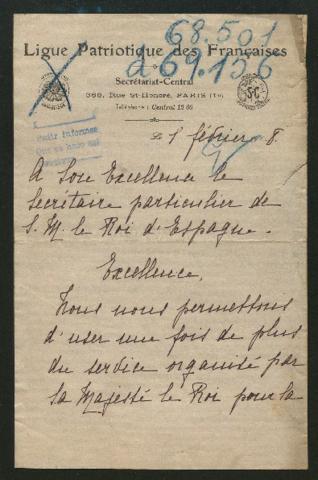 68.501
a 69.156
Ligue Patriotique des Françaises
Secrétariat-Central
368, Rue St-Honoré, PARIS (1er)
Téléphone : Central 12 60
Pedir informes
Que se hace saber
février 8.
A Son Excellence le
Secrétaire particulier de
S. M. le Roi d'Espagne.
Excellence,
Nous nous permettons
d'user une fois de plus
du service organisé par
Sa Majesté le Roi pour la